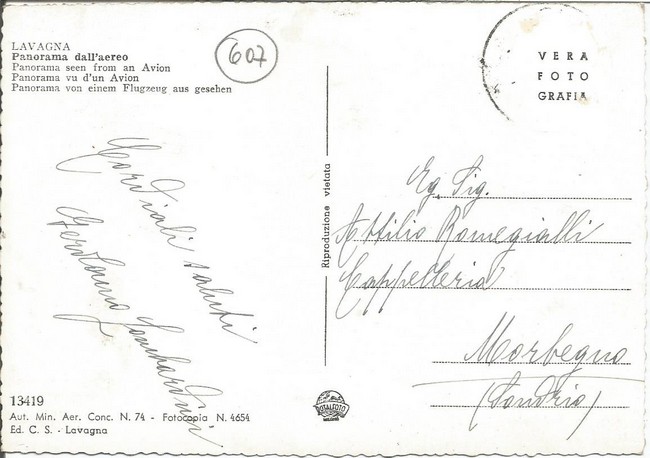 LAVAGNA
Panorama dall'aereo
Panorama seen from an Avion
Panorama vu d'un Avion
Panorama von einem Flugzeug aus gesehen
607
VERA
FOTO
GRAFIA
Cordiali saluti
Gerolamo Lombardini
Riproduzione vietata
Eg. Sig.
Attilio Romegialli
Cappelleria
Morbegno
(Sondrio)
13419
Aut. Min. Aer. Conc. N. 74 - Fotocopia N. 4654
Ed. C. S. - Lavagna
ROTALFOTO
MILANO